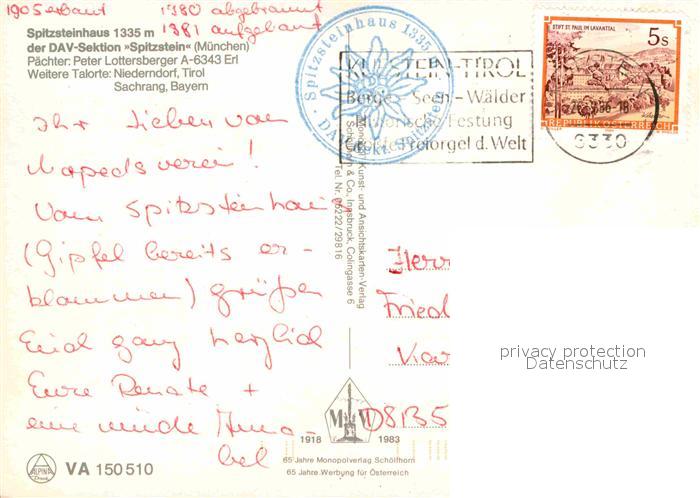 1905 erbaut 1980 abgebrannt
1981 aufgebaut
Spitzsteinhaus 1335 m
der DAV-Sektion »Spitzstein« (München)
Pächter: Peter Lottersberger A-6343 Erl
Weitere Talorte: Niederndorf, Tirol
Sachrang, Bayern
Spitzsteinhaus 1335
DAV-Sekt. Spitzstein
KUFSTEIN-TIROL
Berge-Seen-Wälder
Historische Festung
Größte Freiorgel d. Welt
STIFT ST. PAUL IM LAVANTTAL
5s
REPUBLIK ÖSTERREICH
6330
Ihr Lieben vom
Mopedsverein!
Vom Spitzsteinhaus
(Gipfel bereits er-
klommen) grüßen
Euch ganz herzlich
Eure Renate +
eine müde Anna-
bel
Kunst- und Ansichtskarten-Verlag
Schöllhorn & Co., Innsbruck, Colingasse 6
Tel. Nr. 05222/29816
Herr
Fried
Kar
D8135
privacy protection
Datenschutz
M V
1918 1983
65 Jahre Monopolverlag Schöllhorn
65 Jahre Werbung für Österreich
ALPINA
Druck
VA 150 510